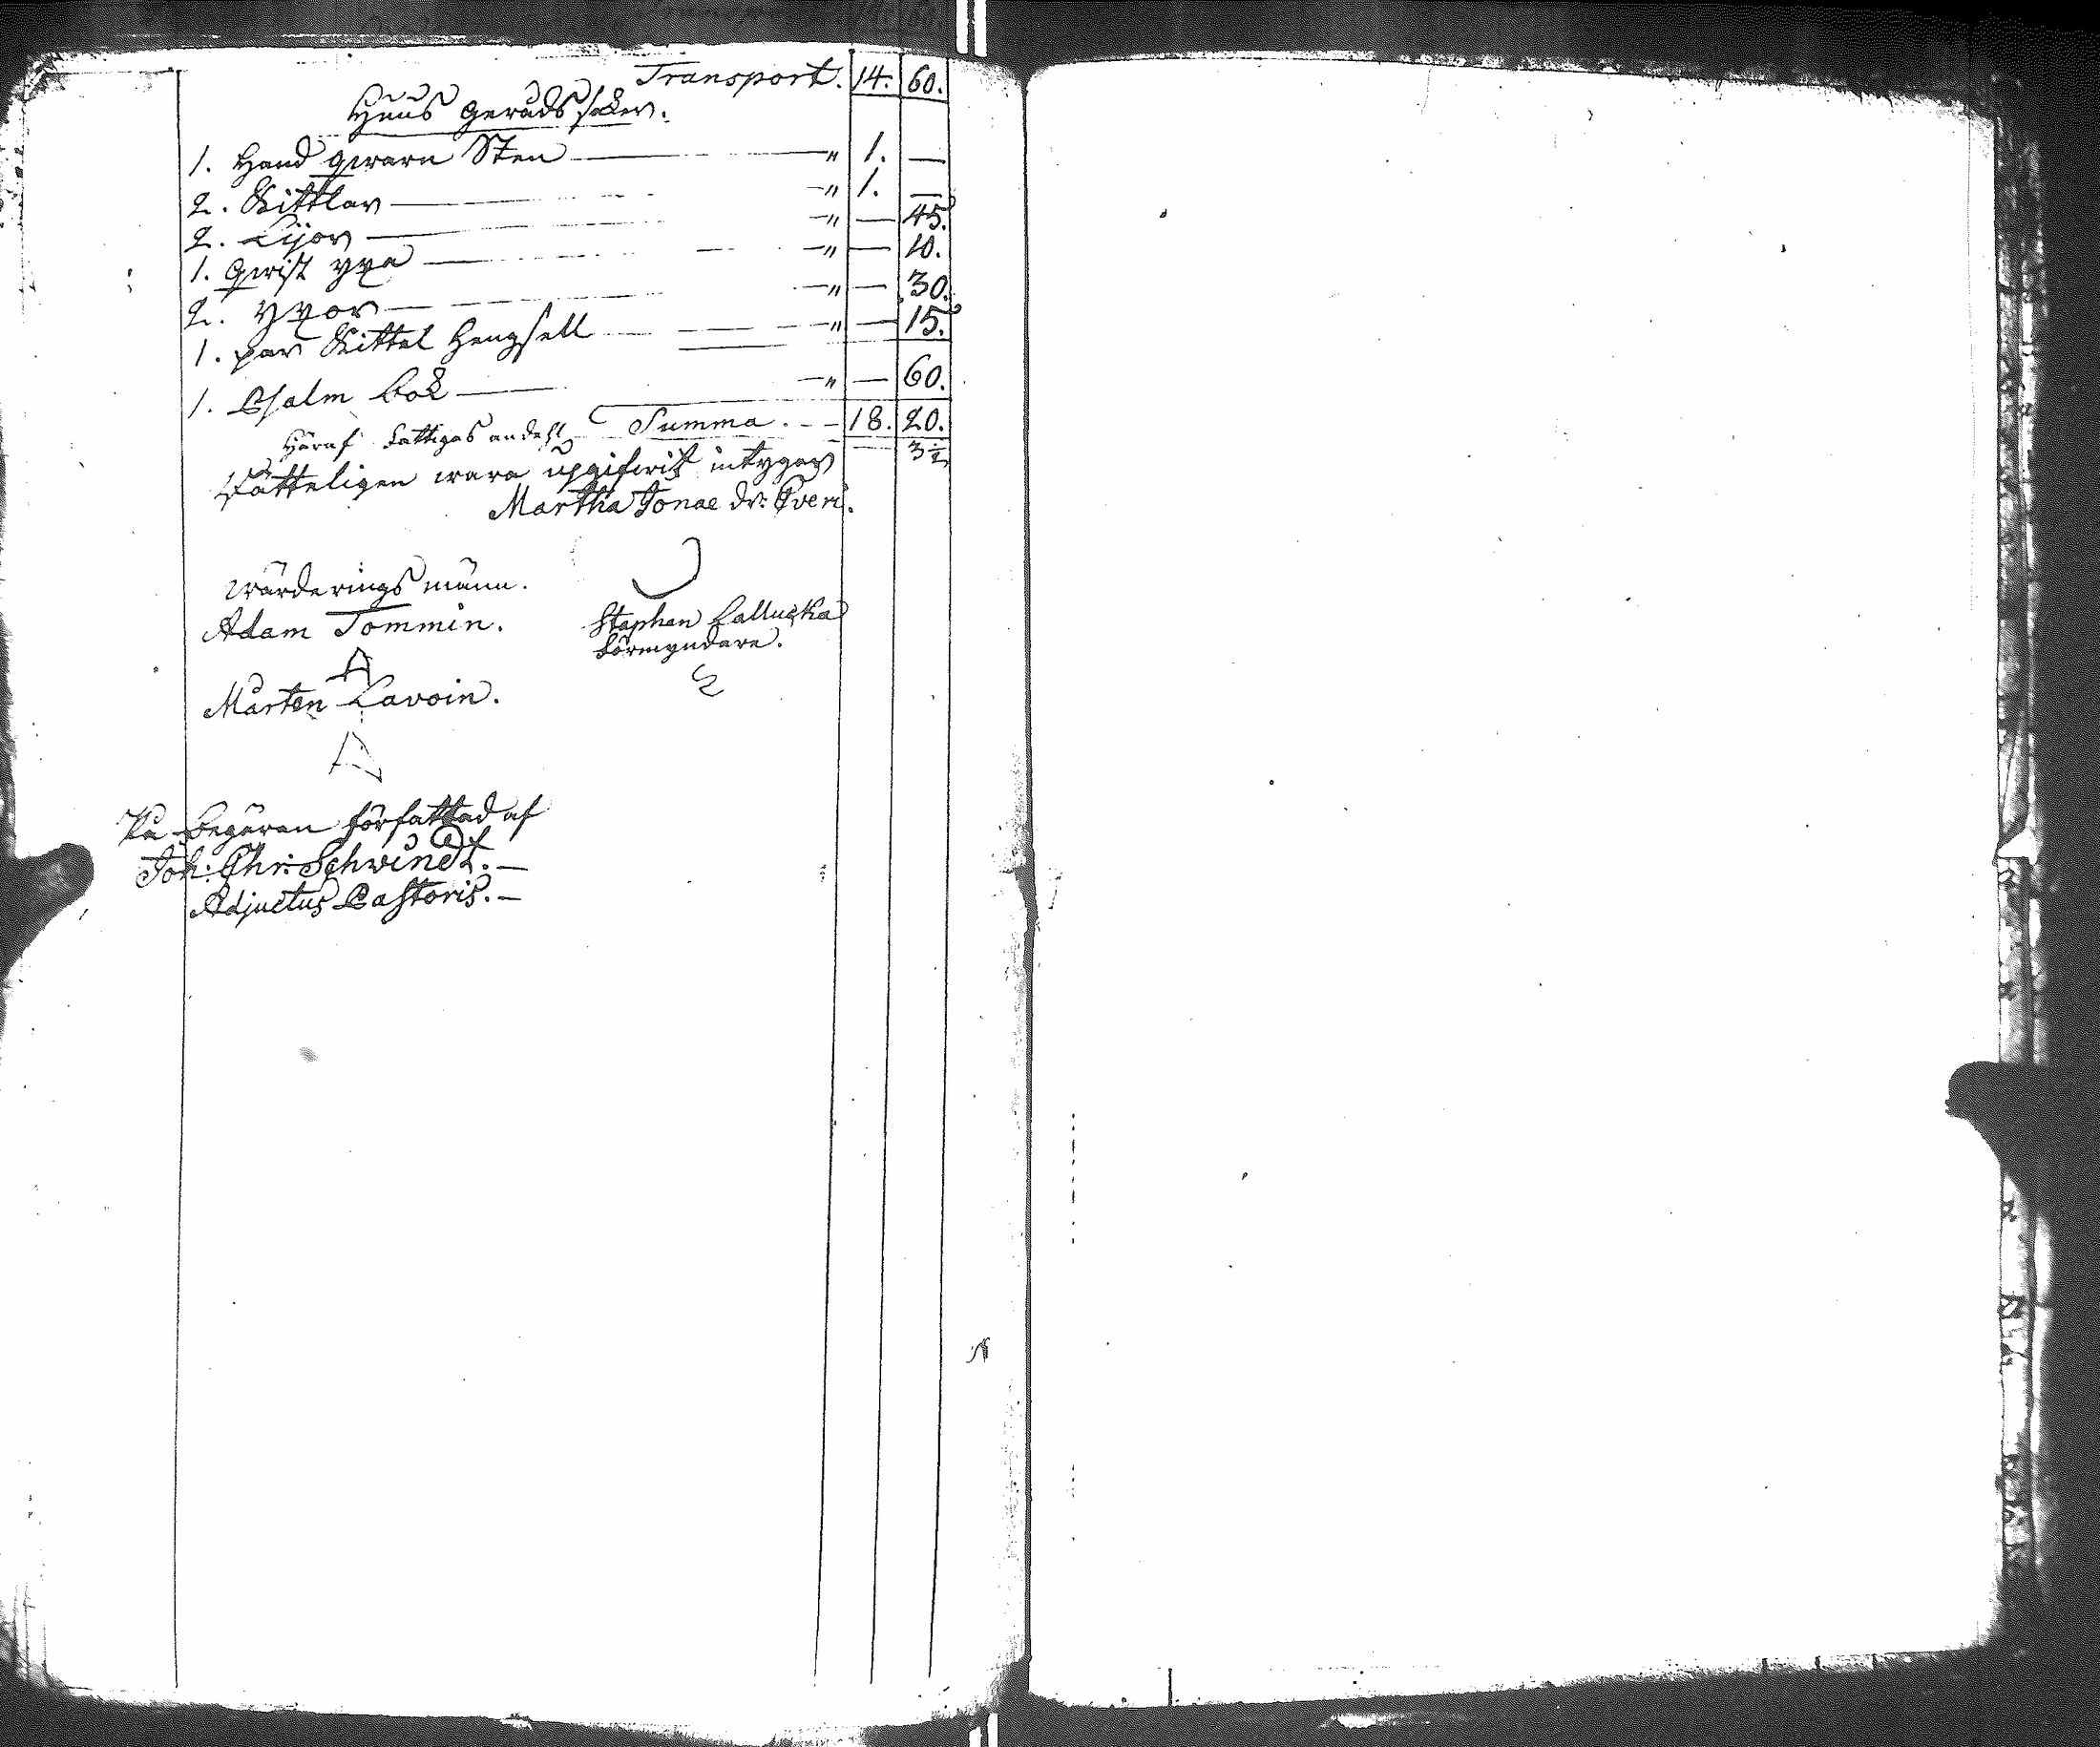 Transport. 14. 60.
Huus geråds saker.
1. Hand qwarn Sten — " 1. —
2. Kittlar — " 1. —
2. Lijor — " — 45.
1. qwist yxa — " — 10.
2. yxor — " — 30.
1. par Kittel hengsell — " — 15.
1. Psalm bok — " — 60.
Summa. — 18. 20.
Häraf fattigas andehl 3 1/2
Rätteligen wara upgifwit intygar
Martha Jonae dr:
Wärderings männ.
Adam Tommin.
Mårten Lavoin.
Staphan
förmyndare.
På begäran författad af
Joh: Chr: Schwindt. —
Adjuctus Pastoris. —